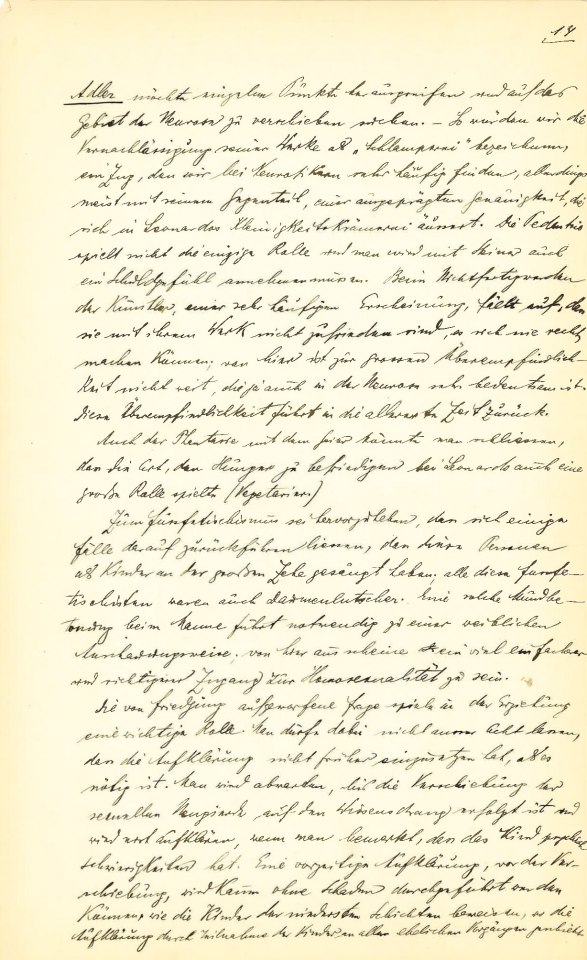 14
Adler möchte einzelne Punkte herausgreifen und auf das
Gebiet der Neurose zu verschieben suchen. – So würden wir die
Vernachlässigung seiner Werke als „Schlamperei" bezeichnen,
ein Zug, den wir bei Neurotikern sehr häufig finden, allerdings
meist mit seinem Gegenteil, einer ausgeprägten Genauigkeit, die
sich in Leonardos Kleinigkeitskrämerei äussert. Die Pedanterie
spielt nicht die einzige Rolle und man wird mit Heine auch
ein Schuldgefühl annehmen müssen. Beim Nichtfertigwerden
der Künstler, einer sehr häufigen Erscheinung, fällt auf, dass
sie mit ihrem Werk nicht zufrieden sind, es sich nie recht
machen können; von hier ist zur grossen Überempfindlich-
keit nicht weit, die ja auch in der Neurose sehr bedeutsam ist.
diese Überempfindlichkeit führt in die allererste Zeit zurück.
Auch der Phantasie mit dem Geier könnte man schliessen,
dass die Art, den Hunger zu befriedigen bei Leonardo auch eine
große Rolle spielte (Vegetarier)
Zum Fussfetischismus sei hervorzuheben, dass sich einige
Fälle darauf zurückführen liessen, dass diese Personen
als Kinder an der großen Zehe gesaugt haben. alle diese Fussfe-
tischisten waren auch Daumenlutscher. Eine solche Mundbe-
tonung beim Manne führt notwendig zu einer weiblichen
Anschauungsweise; von hier aus scheine ein viel einfacherer
und richtigerer Zugang zur Homosexualität zu sein.
Die von Friedjung aufgeworfene Frage spiele in der Erziehung
eine wichtige Rolle. Man dürfe dabei nicht ausser Acht lassen,
dass die Aufklärung nicht früher einzusetzen hat, als es
nötig ist. Man wird abwarten, bis die Verschiebung der
sexuellen Neugierde auf den Wissensdrang erfolgt ist und
wird erst aufklären, wenn man bemerkt, dass das Kind psychische
Schwierigkeiten hat. Eine vorzeitige Aufklärung, vor der Ver-
schiebung, wird kaum ohne Schaden durchgeführt werden
können, wie die Kinder der niedersten Schichten beweisen, wo die
Aufklärung durch Teilnahme der Kinder an allen ehelichen Vorgängen